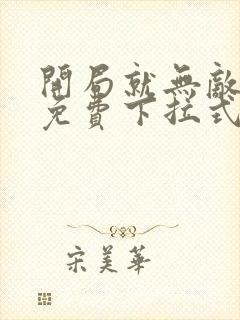 開局就無敵
免費下拉式
宋美華